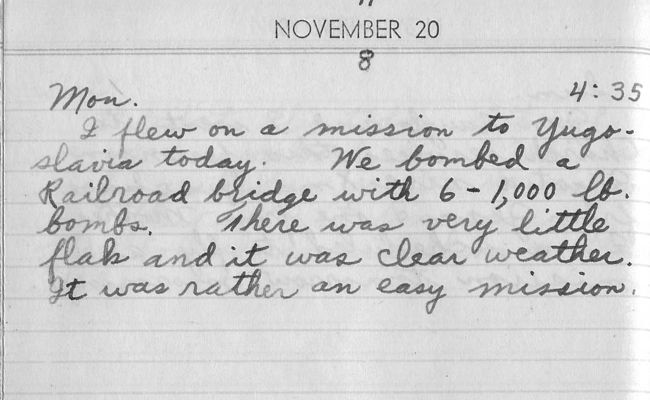 NOVEMBER 20
8
Mon. 4:35
I flew on a mission to Yugo-
slavia today. We bombed a
Railroad bridge with 6-1,000 lb.
bombs. There was very little
flak and it was clear weather.
It was rather an easy mission.